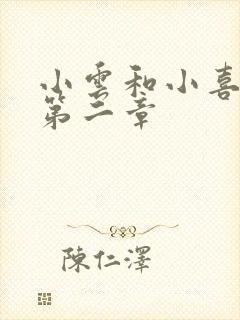 小雲和小喜
第二章
陳仁澤